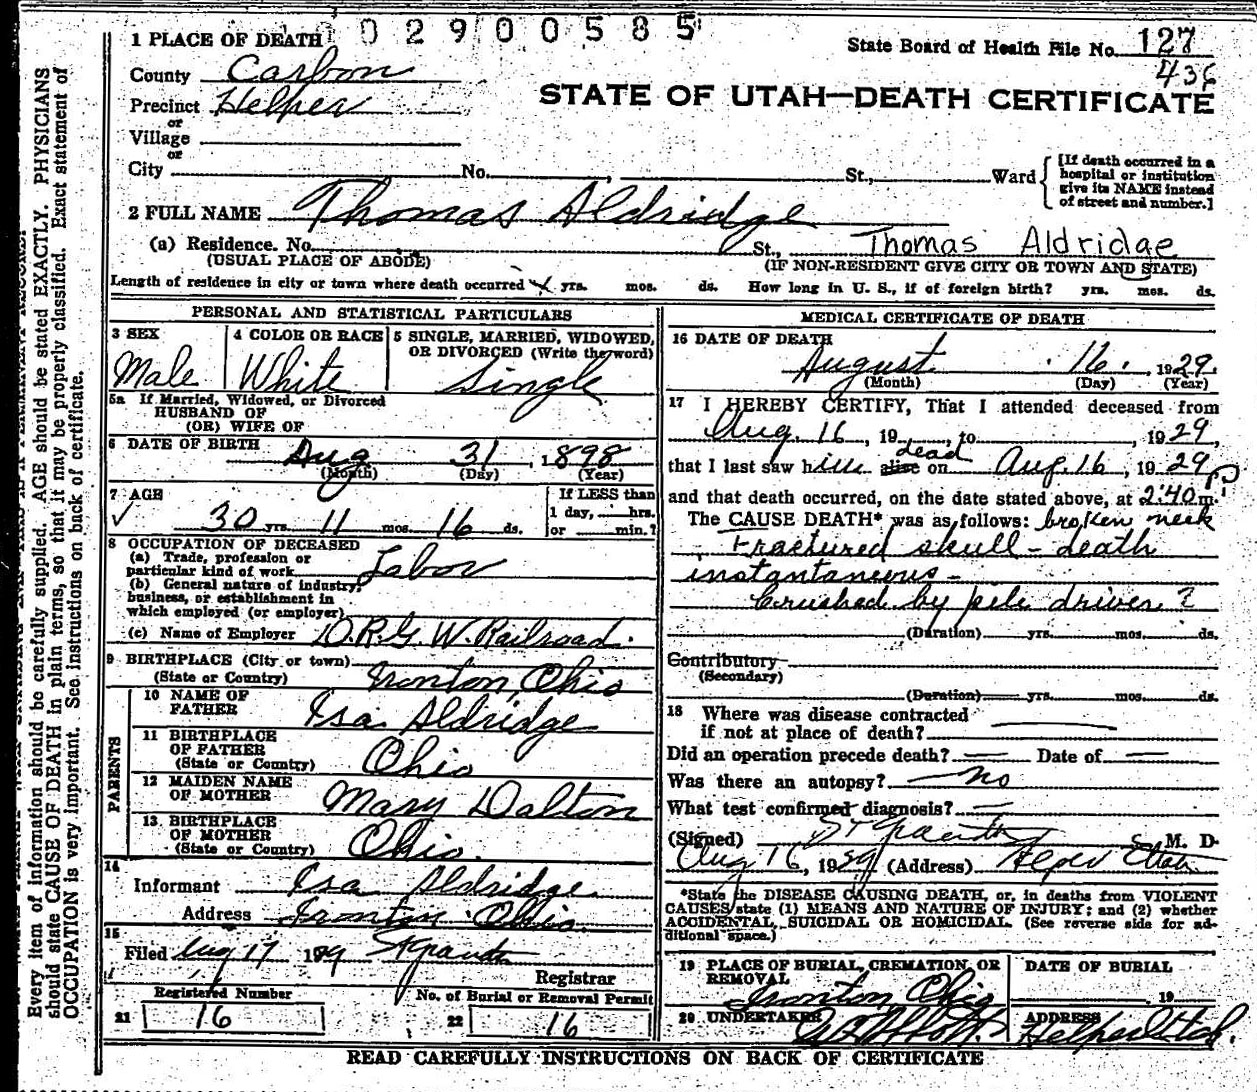 0 2 9 0 0 5 8 5
1 PLACE OF DEATH
State Board of Health File No. 127
436
County Carbon
Precinct Helper
STATE OF UTAH—DEATH CERTIFICATE
or
Village
or
City No. , St., Ward
[If death occurred in a
hospital or institution
give its NAME instead
of street and number.]
2 FULL NAME Thomas Aldridge
(a) Residence. No. St., Thomas Aldridge
(USUAL PLACE OF ABODE) (IF NON-RESIDENT GIVE CITY OR TOWN AND STATE)
Length of residence in city or town where death occurred yrs. mos. ds. How long in U. S., if of foreign birth? yrs. mos. ds.
PERSONAL AND STATISTICAL PARTICULARS
3 SEX
Male
4 COLOR OR RACE
White
5 SINGLE, MARRIED, WIDOWED,
OR DIVORCED (Write the word)
Single
5a If Married, Widowed, or Divorced
HUSBAND OF
(OR) WIFE OF
6 DATE OF BIRTH
Aug 31, 1898
(Month) (Day) (Year)
7 AGE
30 yrs. 11 mos. 16 ds.
If LESS than
1 day, hrs.
or min.?
8 OCCUPATION OF DECEASED
(a) Trade, profession or
particular kind of work Labor
(b) General nature of industry,
business, or establishment in
which employed (or employer)
(c) Name of Employer D.R.G.W. Railroad.
9 BIRTHPLACE (City or town)
(State or Country) Ironton, Ohio
PARENTS
10 NAME OF
FATHER Isa Aldridge
11 BIRTHPLACE
OF FATHER
(State or Country) Ohio
12 MAIDEN NAME
OF MOTHER Mary Dalton
13 BIRTHPLACE
OF MOTHER
(State or Country) Ohio.
14
Informant Isa Aldridge
Address Ironton Ohio.
15
Filed Aug 17 1929
Registrar
Registered Number
21 16
No. of Burial or Removal Permit
22 16
MEDICAL CERTIFICATE OF DEATH
16 DATE OF DEATH
August 16, 1929.
(Month) (Day) (Year)
17 I HEREBY CERTIFY, That I attended deceased from
Aug. 16, 19 , to , 1929,
dead
that I last saw him alive on Aug. 16, 1929
and that death occurred, on the date stated above, at 2:40 P m.
The CAUSE DEATH* was as follows: broken neck
Fractured skull - death
instantaneous -
Crushed by pile driver?
(Duration) yrs. mos. ds.
Contributory
(Secondary)
(Duration) yrs. mos. ds.
18 Where was disease contracted
if not at place of death?
Did an operation precede death? Date of
Was there an autopsy? no
What test confirmed diagnosis?
(Signed) M. D.
Aug 16, 1929 (Address) Helper Utah
*State the DISEASE CAUSING DEATH, or, in deaths from VIOLENT
CAUSES state (1) MEANS AND NATURE OF INJURY; and (2) whether
ACCIDENTAL, SUICIDAL OR HOMICIDAL. (See reverse side for ad-
ditional space.)
19 PLACE OF BURIAL, CREMATION, OR
REMOVAL
Ironton Ohio
DATE OF BURIAL
19
20 UNDERTAKER
ADDRESS
Helper Utah.
READ CAREFULLY INSTRUCTIONS ON BACK OF CERTIFICATE
Every item of information should be carefully supplied. AGE should be stated EXACTLY. PHYSICIANS
should state CAUSE OF DEATH in plain terms, so that it may be properly classified. Exact statement of
OCCUPATION is very important. See instructions on back of certificate.